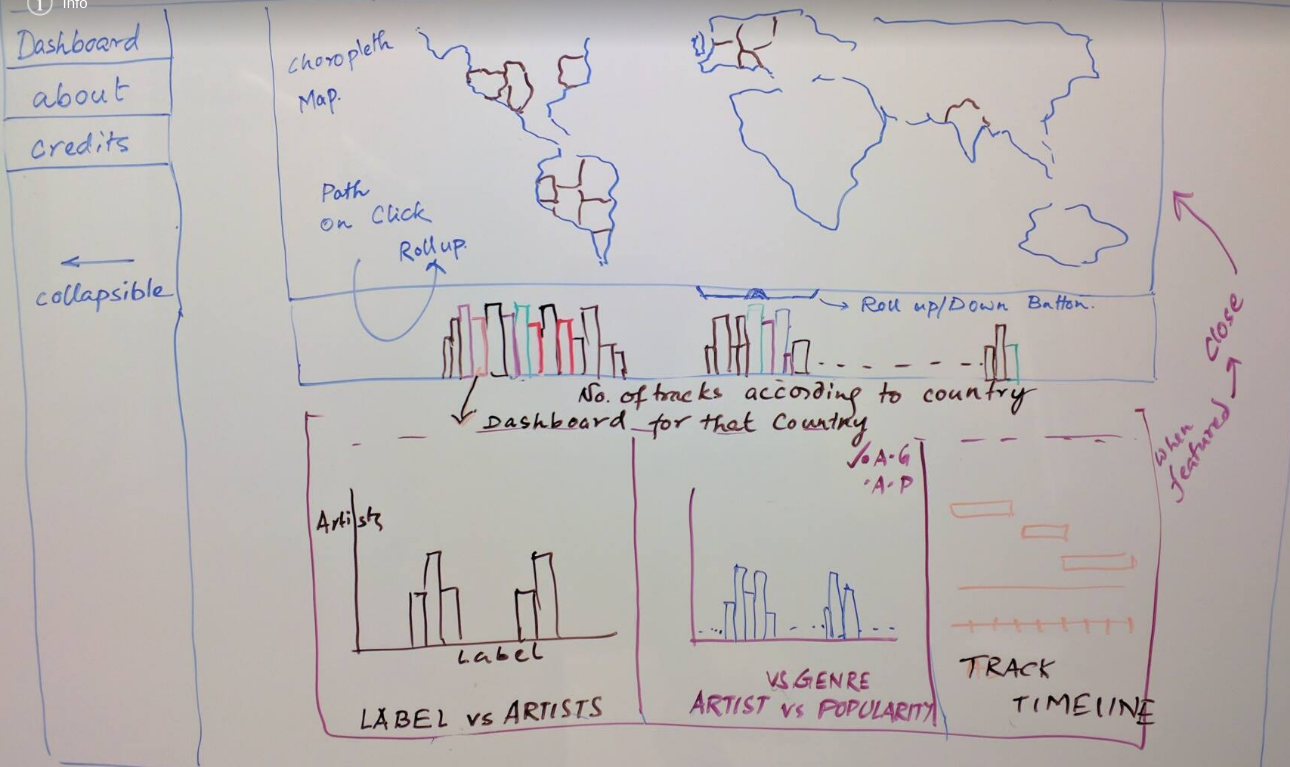 Info
Dashboard
about
credits
collapsible
Choropleth
Map.
Path
on Click
Roll up.
Roll up/Down Button.
No. of tracks according to country
Dashboard for that Country
Close
when
featured
Artists
Label
LABEL vs ARTISTS
A-G
A-P
VS GENRE
ARTIST VS POPULARITY
TRACK
TIMELINE